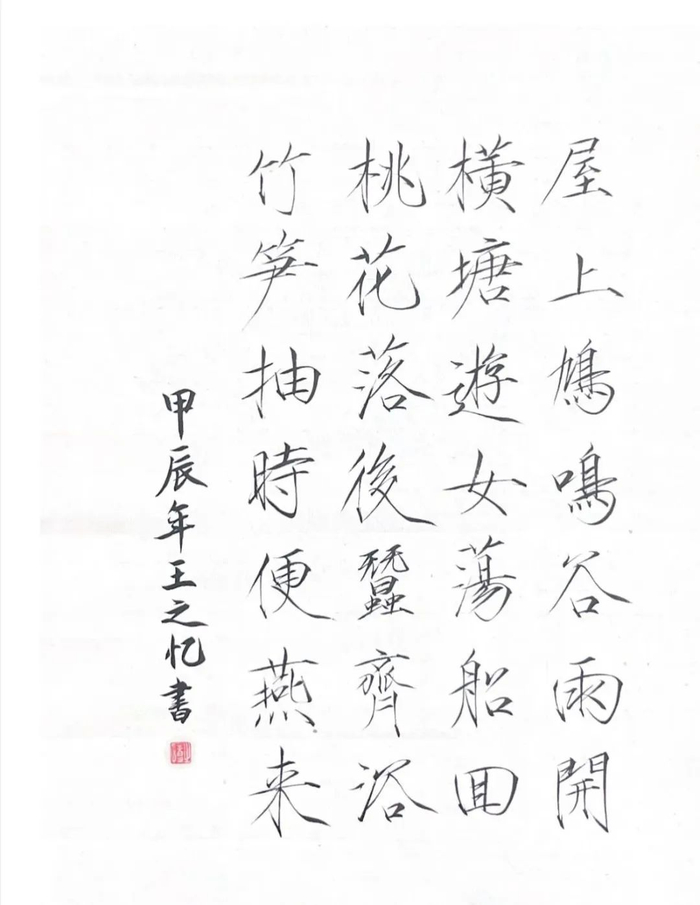 屋上鳩鳴谷雨開
橫塘遊女蕩船回
桃花落後蠶齊浴
竹笋抽時便燕来
甲辰年王之忆書